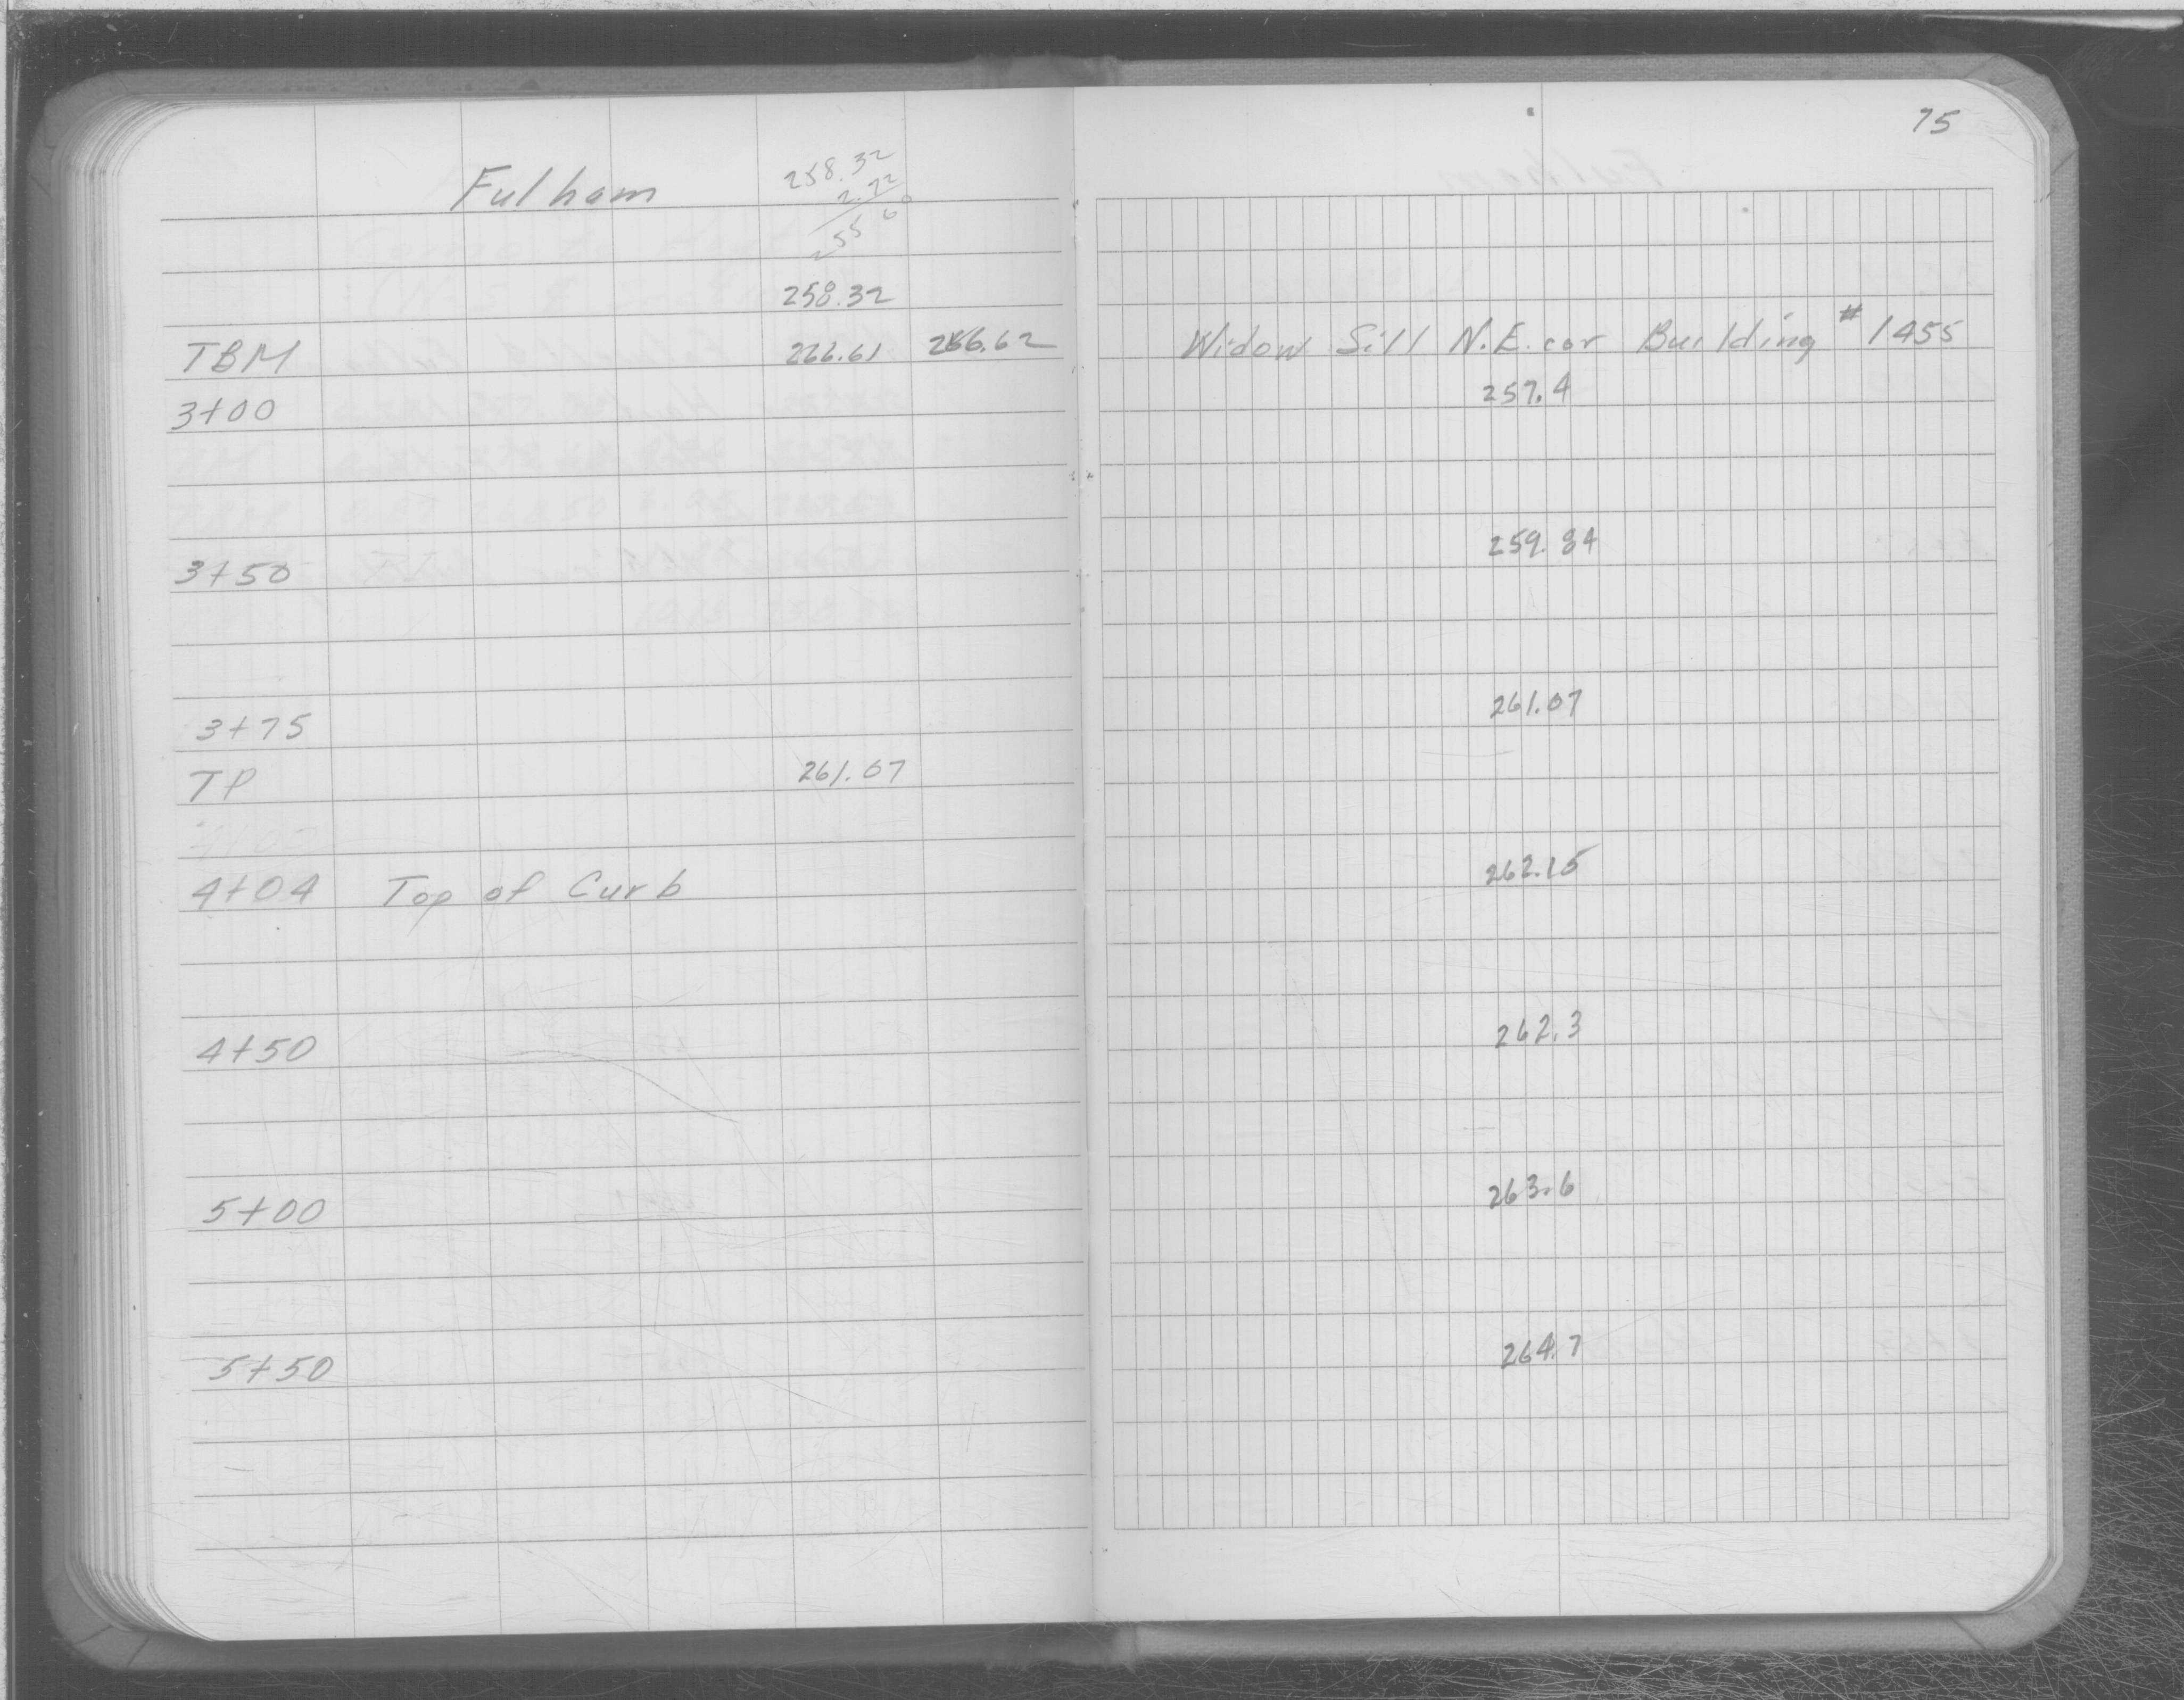 75
Fulham 258.32
2.72
255 60
258.32
TBM 266.61 266.62 Widow Sill N.E. cor Building # 1455
3+00 257.4
3+50 259.84
3+75 261.07
TP 261.07
4+00
4+04 Top of Curb 262.15
4+50 262.3
5+00 263.6
5+50 264.7